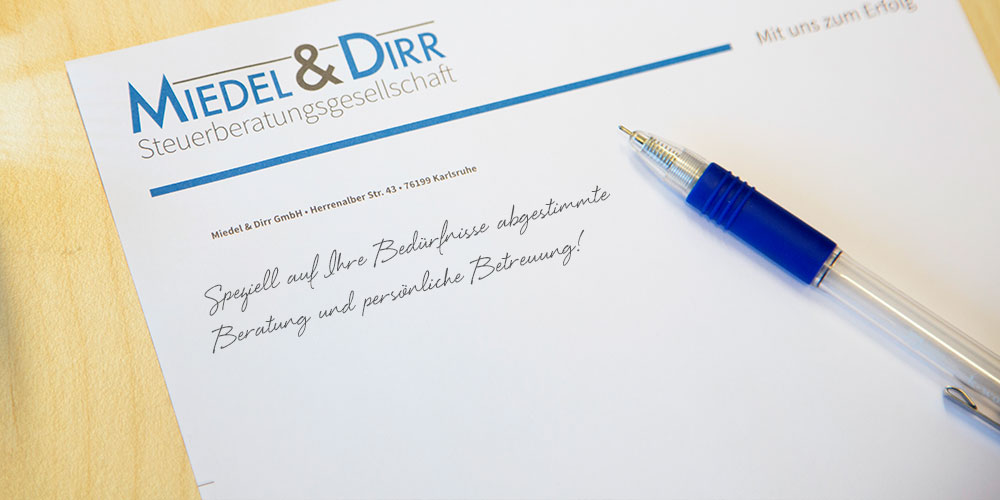 MIEDEL & DIRR
Steuerberatungsgesellschaft
Mit uns zum Erfolg
Miedel & Dirr GmbH • Herrenalber Str. 43 • 76199 Karlsruhe
Speziell auf Ihre Bedürfnisse abgestimmte
Beratung und persönliche Betreuung!